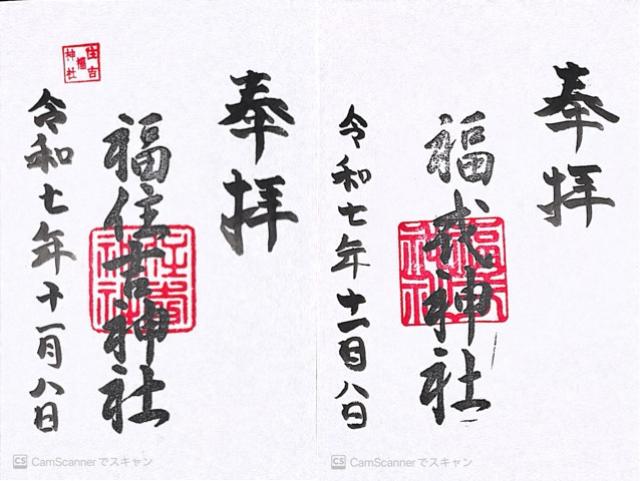 奉拝
福住吉神社
令和七年十一月八日
住吉
福
神社
CamScannerでスキャン
奉拝
福戎神社
令和七年十一月八日
CamScannerでスキャン